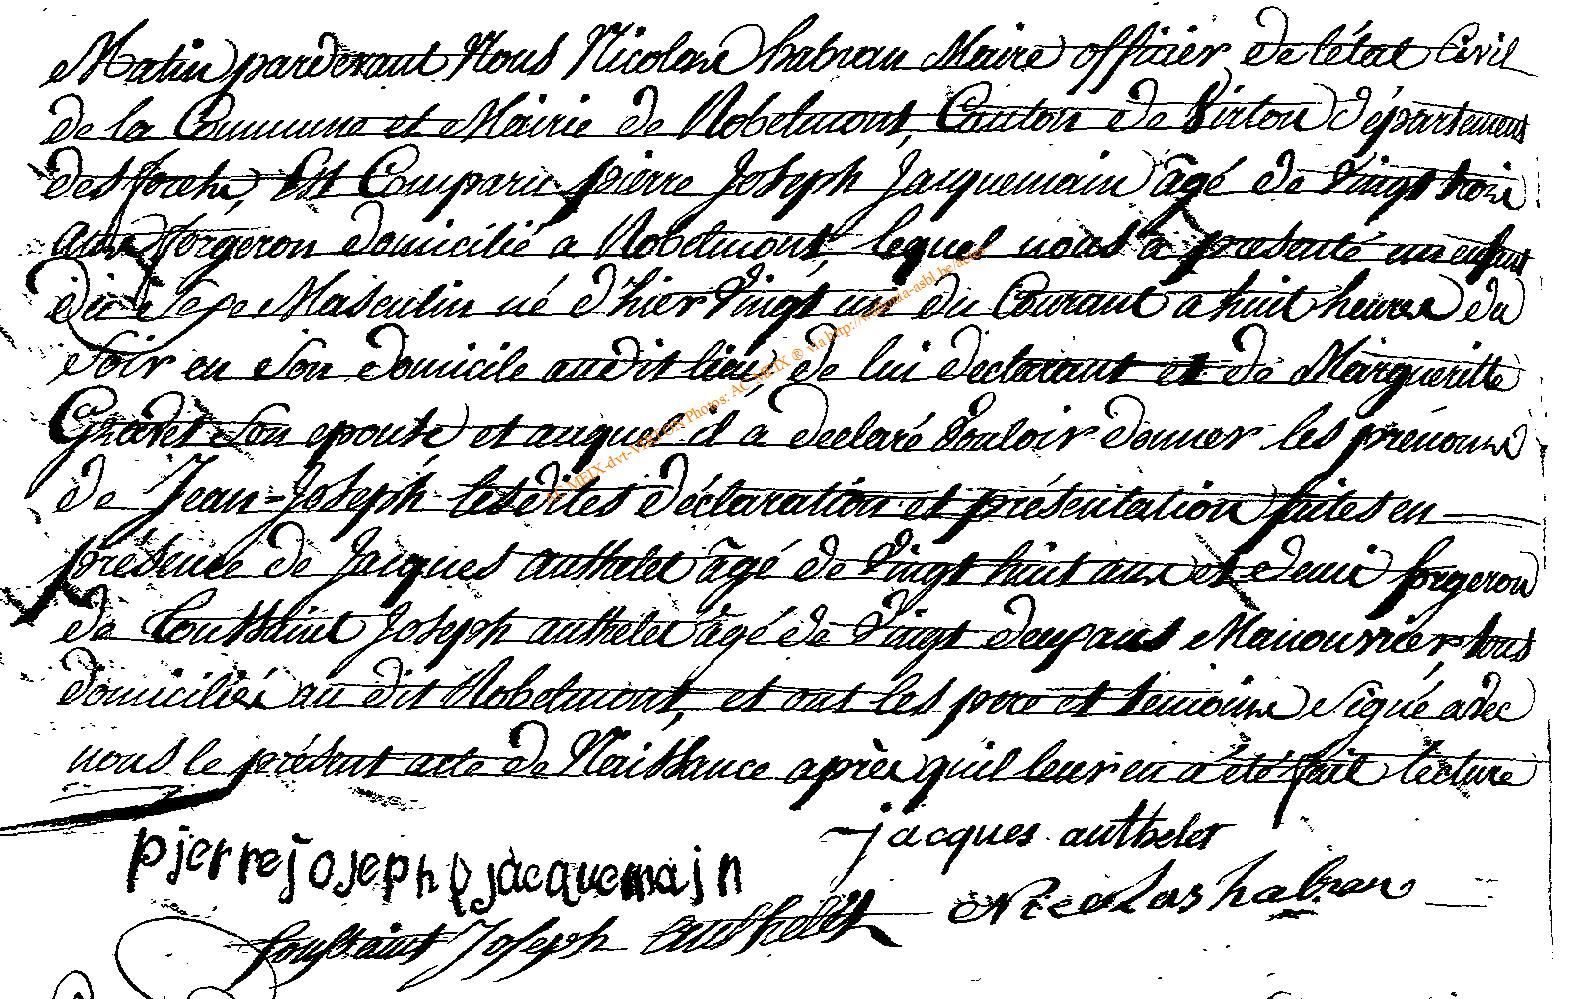 Matin pardevant Nous Nicolas habran Maire officier de l'état Civil
de la Commune et Mairie de Robelmont, Canton de Virton département
des forêts, Est Comparu pierre Joseph Jacquemain âgé de vingt trois
ans forgeron domicilié a Robelmont, lequel nous a presenté un enfant
du sexe Masculin né d'hier vingt un du Courant a huit heures du
soir en son domicile audit lieu, de lui declarant et de Margueritte
Gravet son epouse, et auquel il a declaré vouloir donner les prénoms
de Jean-Joseph lesdites déclaration et présentation faites en
présence de Jacques authelet âgé de vingt huit ans et demi forgeron
de Toussaint Joseph authelet âgé de vingt deux ans Manouvrier, tous
domiciliés au dit Robelmont, et ont les pere et temoins signé avec
nous le présent acte de Naissance après qu'il leur en a été fait lecture
jacques authelet
pierre joseph jacquemain
Nicolas habran
Toussaint Joseph Authelet
AC MEIX-dvt-VIRTON Photos: AC MEIX ® via http://